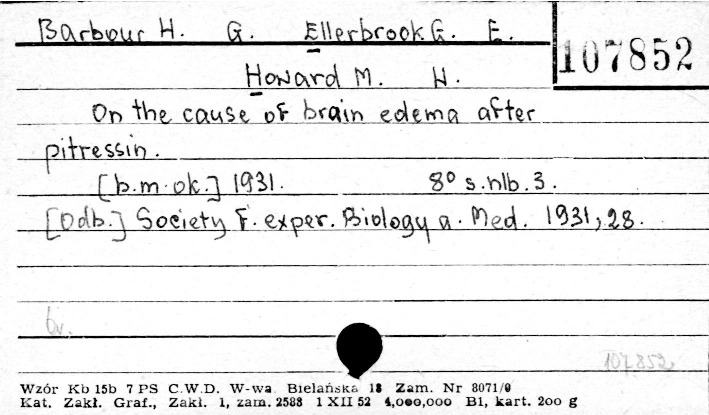 Barbour H. G. Ellerbrook G. E.
107852
Howard M. N.
On the cause of brain edema after
pitressin.
[b.m.ok.] 1931. 8° s.nlb. 3.
[Odb.] Society F. exper. Biology a. Med. 1931, 28.
br.
107852
Wzór Kb 15b 7 PS C.W.D. W-wa. Bielańska 18 Zam. Nr 8071/9
Kat. Zakł. Graf., Zakł. 1, zam. 2588 1 XII 52 4,000,000 B1, kart. 200 g